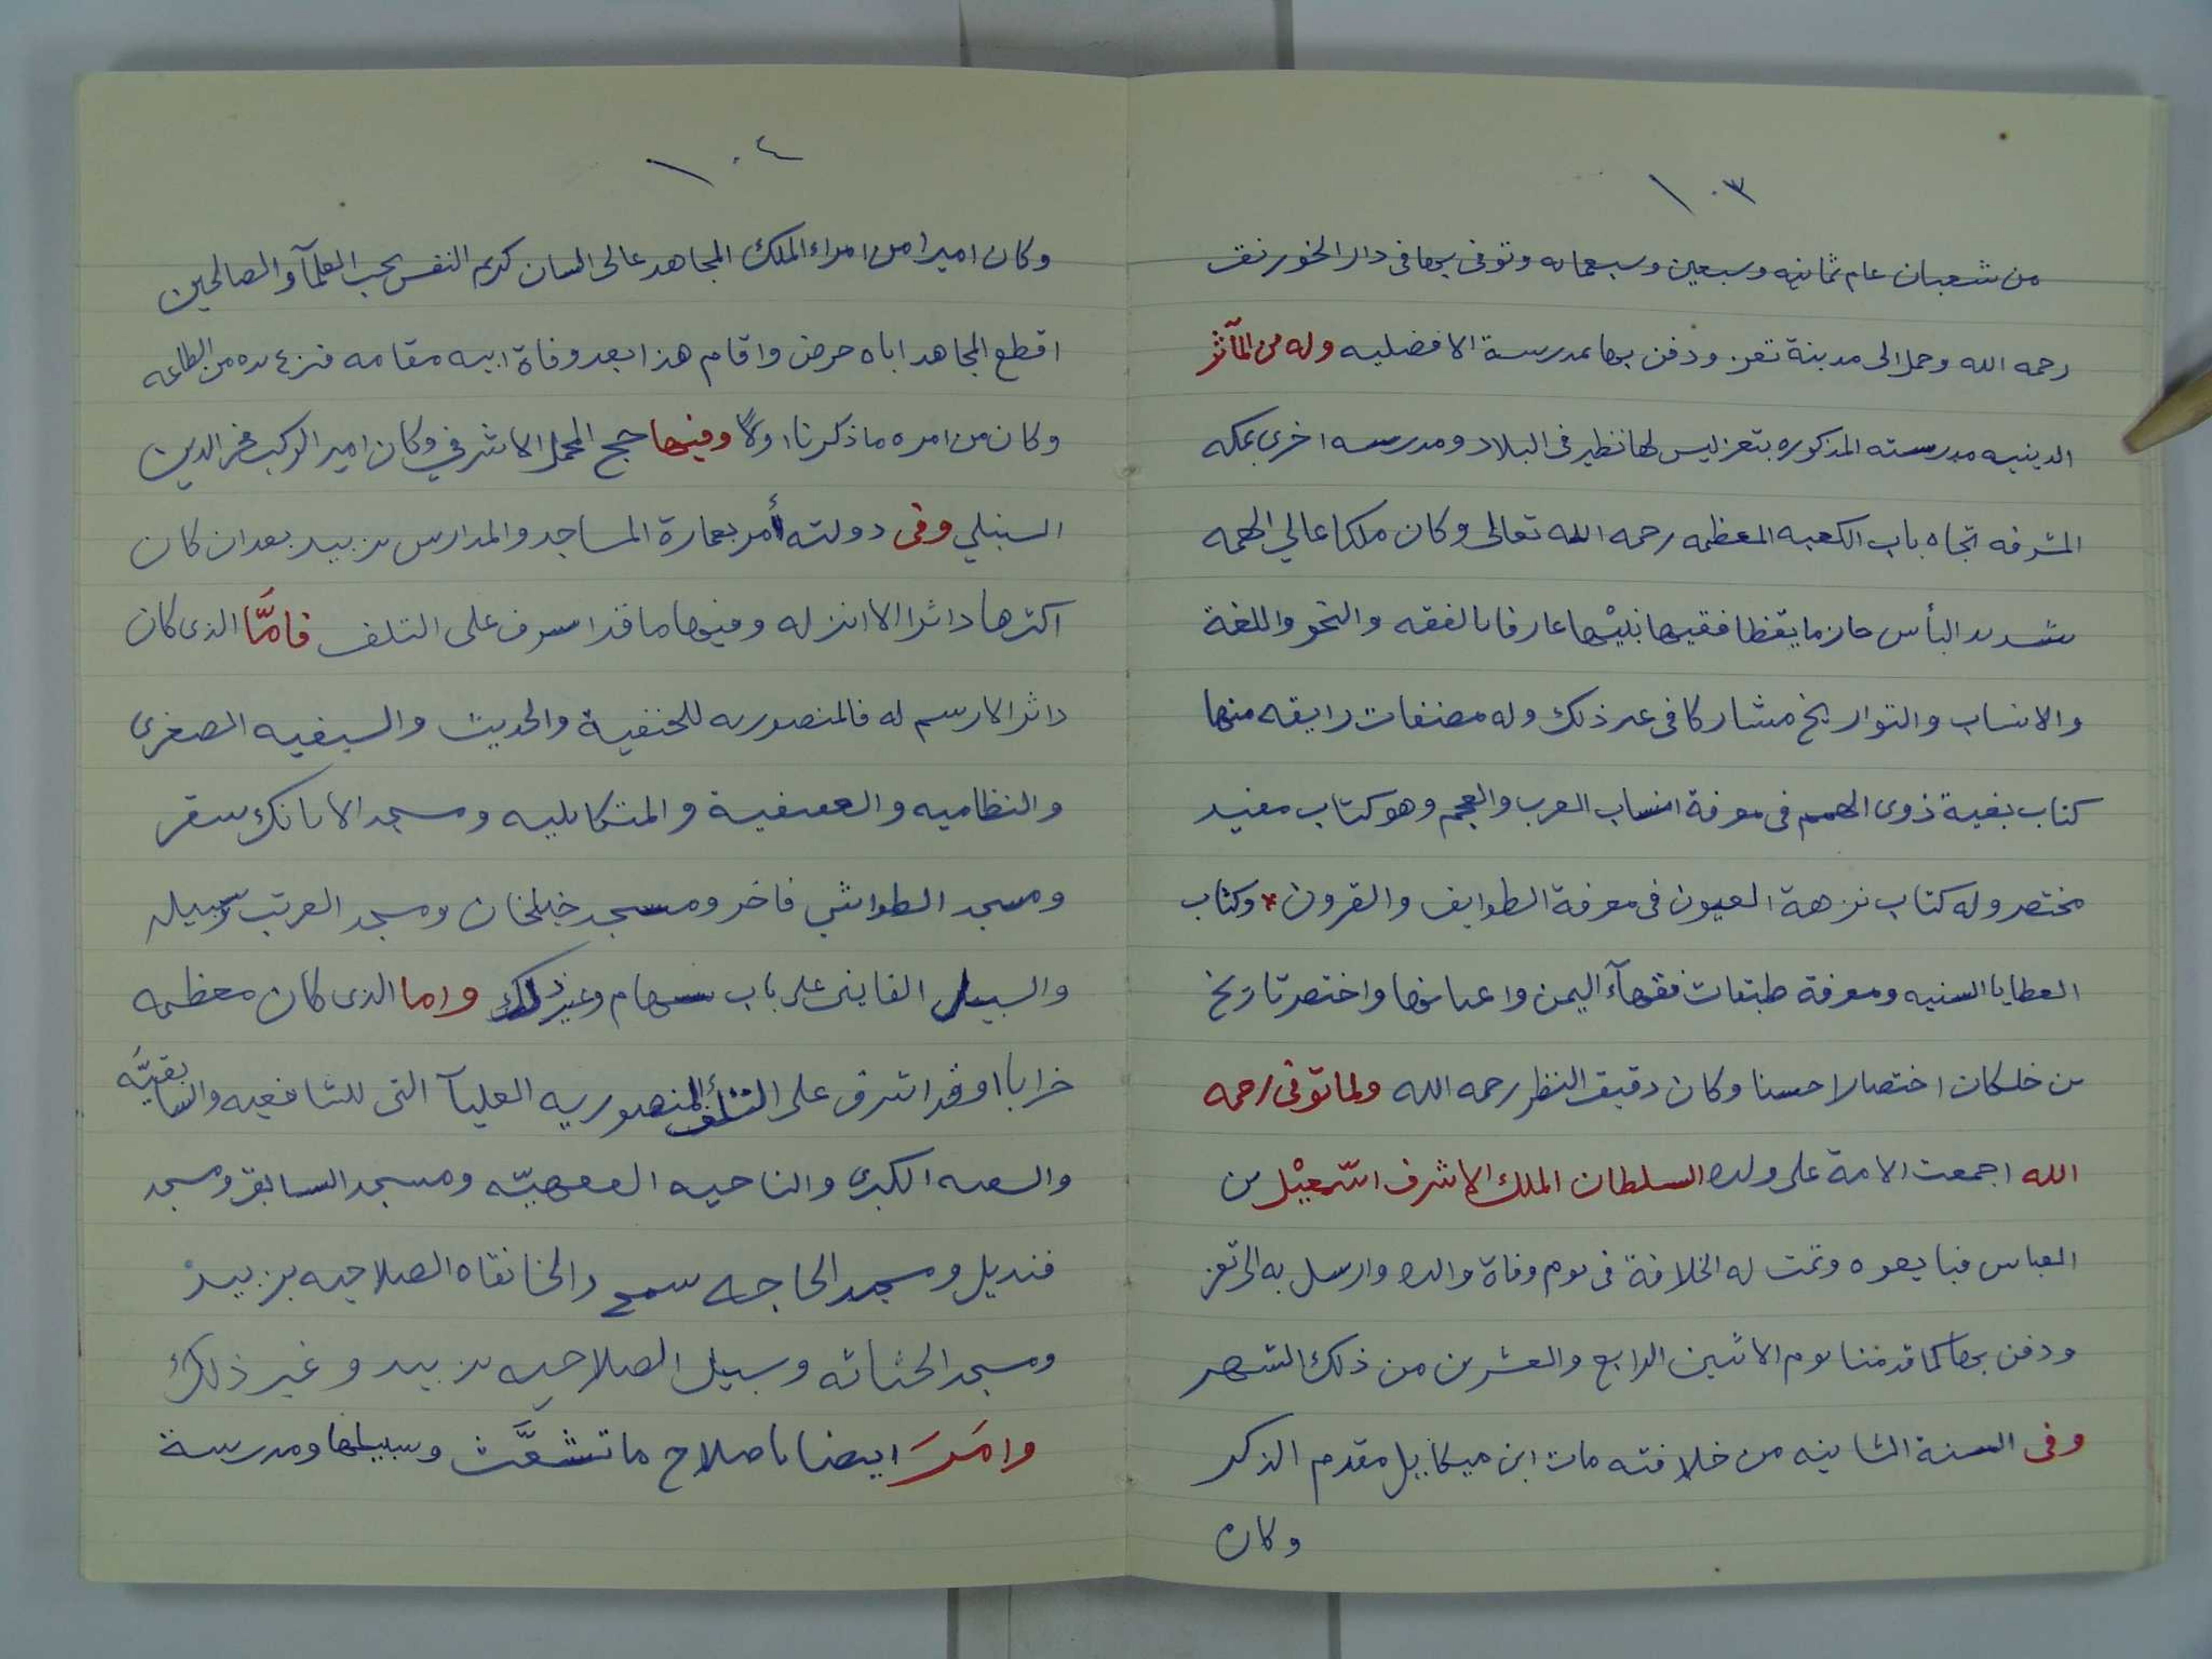 ١٠٣
من شعبان عام ثمانيه وسبعين وسبعمايه وتوفى بها فى دار الخورنق
رحمه الله وحمل الى مدينة تعز ودفن بها بمدرسة الافضليه وله من المآثر
الدينيه مدرسته المذكوره بتعز ليس لها نظير فى البلاد ومدرسه اخرى بمكه
المشرفه تجاه باب الكعبه المعظمه رحمه الله تعالى وكان ملكا عالي الهمه
شديد البأس حازما يقظا فقيها نبيها عارفا بالفقه والنحو واللغة
والانساب والتواريخ مشاركا فى غير ذلك وله مصنفات رايقه منها
كتاب بغية ذوى الهمم فى معرفة انساب العرب والعجم وهو كتاب مفيد
مختصر وله كتاب نزهة العيون فى معرفة الطوايف والقرون * وكتاب
العطايا السنيه ومعرفة طبقات فقهآء اليمن واعيانها واختصر تاريخ
بن خلكان اختصارا حسنا وكان دقيق النظر رحمه الله ولما توفى رحمه
الله اجمعت الامة على ولده السلطان الملك الاشرف اسمعيل بن
العباس فبايعوه وتمت له الخلافة فى يوم وفاة والده وارسل به الى تعز
ودفن بها كما قدمنا يوم الاثنين الرابع والعشرين من ذلك الشهر
وفى السنة الثانيه من خلافته مات ابن ميكاييل مقدم الذكر
وكان
١٠٤
وكان اميرا من امراء الملك المجاهد عالى الشان كريم النفس يحب العلمآ والصالحين
اقطع المجاهد اباه حرض واقام هذا بعد وفاة ابيه مقامه فنزع يده من الطاعه
وكان من امره ما ذكرنا اولا وفيها حج المحمل الاشرفي وكان امير الركب فخر الدين
السنبلي وفى دولته أمر بعمارة المساجد والمدارس بزبيد بعد ان كان
اكثرها داثرا لا اثر له وفيها ما قد اسرف على التلف فامَّا الذى كان
داثرا لا رسم له فالمنصوريه للحنفية والحديث والسيفيه الصغرى
والنظاميه والعفيفية والمتكايليه ومسجد الاتابك سنقر
ومسجد الطواشي فاخر ومسجد خيلخان ومسجد العرتب وسبيله
والسبيل الفايني على باب سهام وغير ذلك واما الذى كان معظمه
خرابا او قد اشرف على التلف المنصوريه العليآ التى للشافعيه والسابقيَّه
والسيفيه الكبرى والتاجيه الفقهيّه ومسجد السابق ومسجد
قنديل ومسجد الحاجه سمح والخانقاه الصلاحيه بزبيد
ومسجد الخثاثه وسبيل الصلاحيه بزبيد وغير ذلك
وامَرَ ايضا باصلاح ما تشعَّث وسبيلها ومدرسة